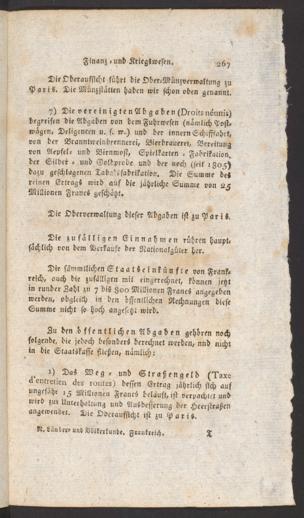 Finanz- und Kriegswesen. 267
Die Oberaufsicht führt die Ober-Münzverwaltung zu
Paris. Die Münzstätten haben wir schon oben genannt.
7) Die vereinigten Abgaben (Droits réunis)
begreifen die Abgaben von dem Fuhrwesen (nämlich Post-
wägen, Deligencen u. s. w.) und der innern Schifffahrt,
von der Branntweinbrennerei, Bierbrauerei, Bereitung
von Aepfel- und Birnmost, Spielkarten-Fabrikation,
der Silber- und Goldprobe und der noch (seit 1805)
dazu geschlagenen Tabaksfabrikation. Die Summe des
reinen Ertrags wird auf die jährliche Summe von 25
Millionen Francs geschätzt.
Die Oberverwaltung dieser Abgaben ist zu Paris.
Die zufälligen Einnahmen rühren haupt-
sächlich von dem Verkaufe der Nationalgüter her.
Die sämmtlichen Staatseinkünfte von Frank-
reich, auch die zufälligen mit eingerechnet, können jetzt
in runder Zahl zu 7 bis 800 Millionen Francs angegeben
werden, obgleich in den öffentlichen Rechnungen diese
Summe nicht so hoch angesetzt wird.
Zu den öffentlichen Abgaben gehören noch
folgende, die jedoch besonders berechnet werden, und nicht
in die Staatskasse fließen, nämlich:
1) Das Weg- und Straßengeld (Taxe
d'entretien des routes) dessen Ertrag jährlich sich auf
ungefähr 15 Millionen Francs beläuft, ist verpachtet und
wird zur Unterhaltung und Ausbesserung der Heerstraßen
angewendet. Die Oberaufsicht ist zu Paris.
N. Länder- und Völkerkunde. Frankreich. T